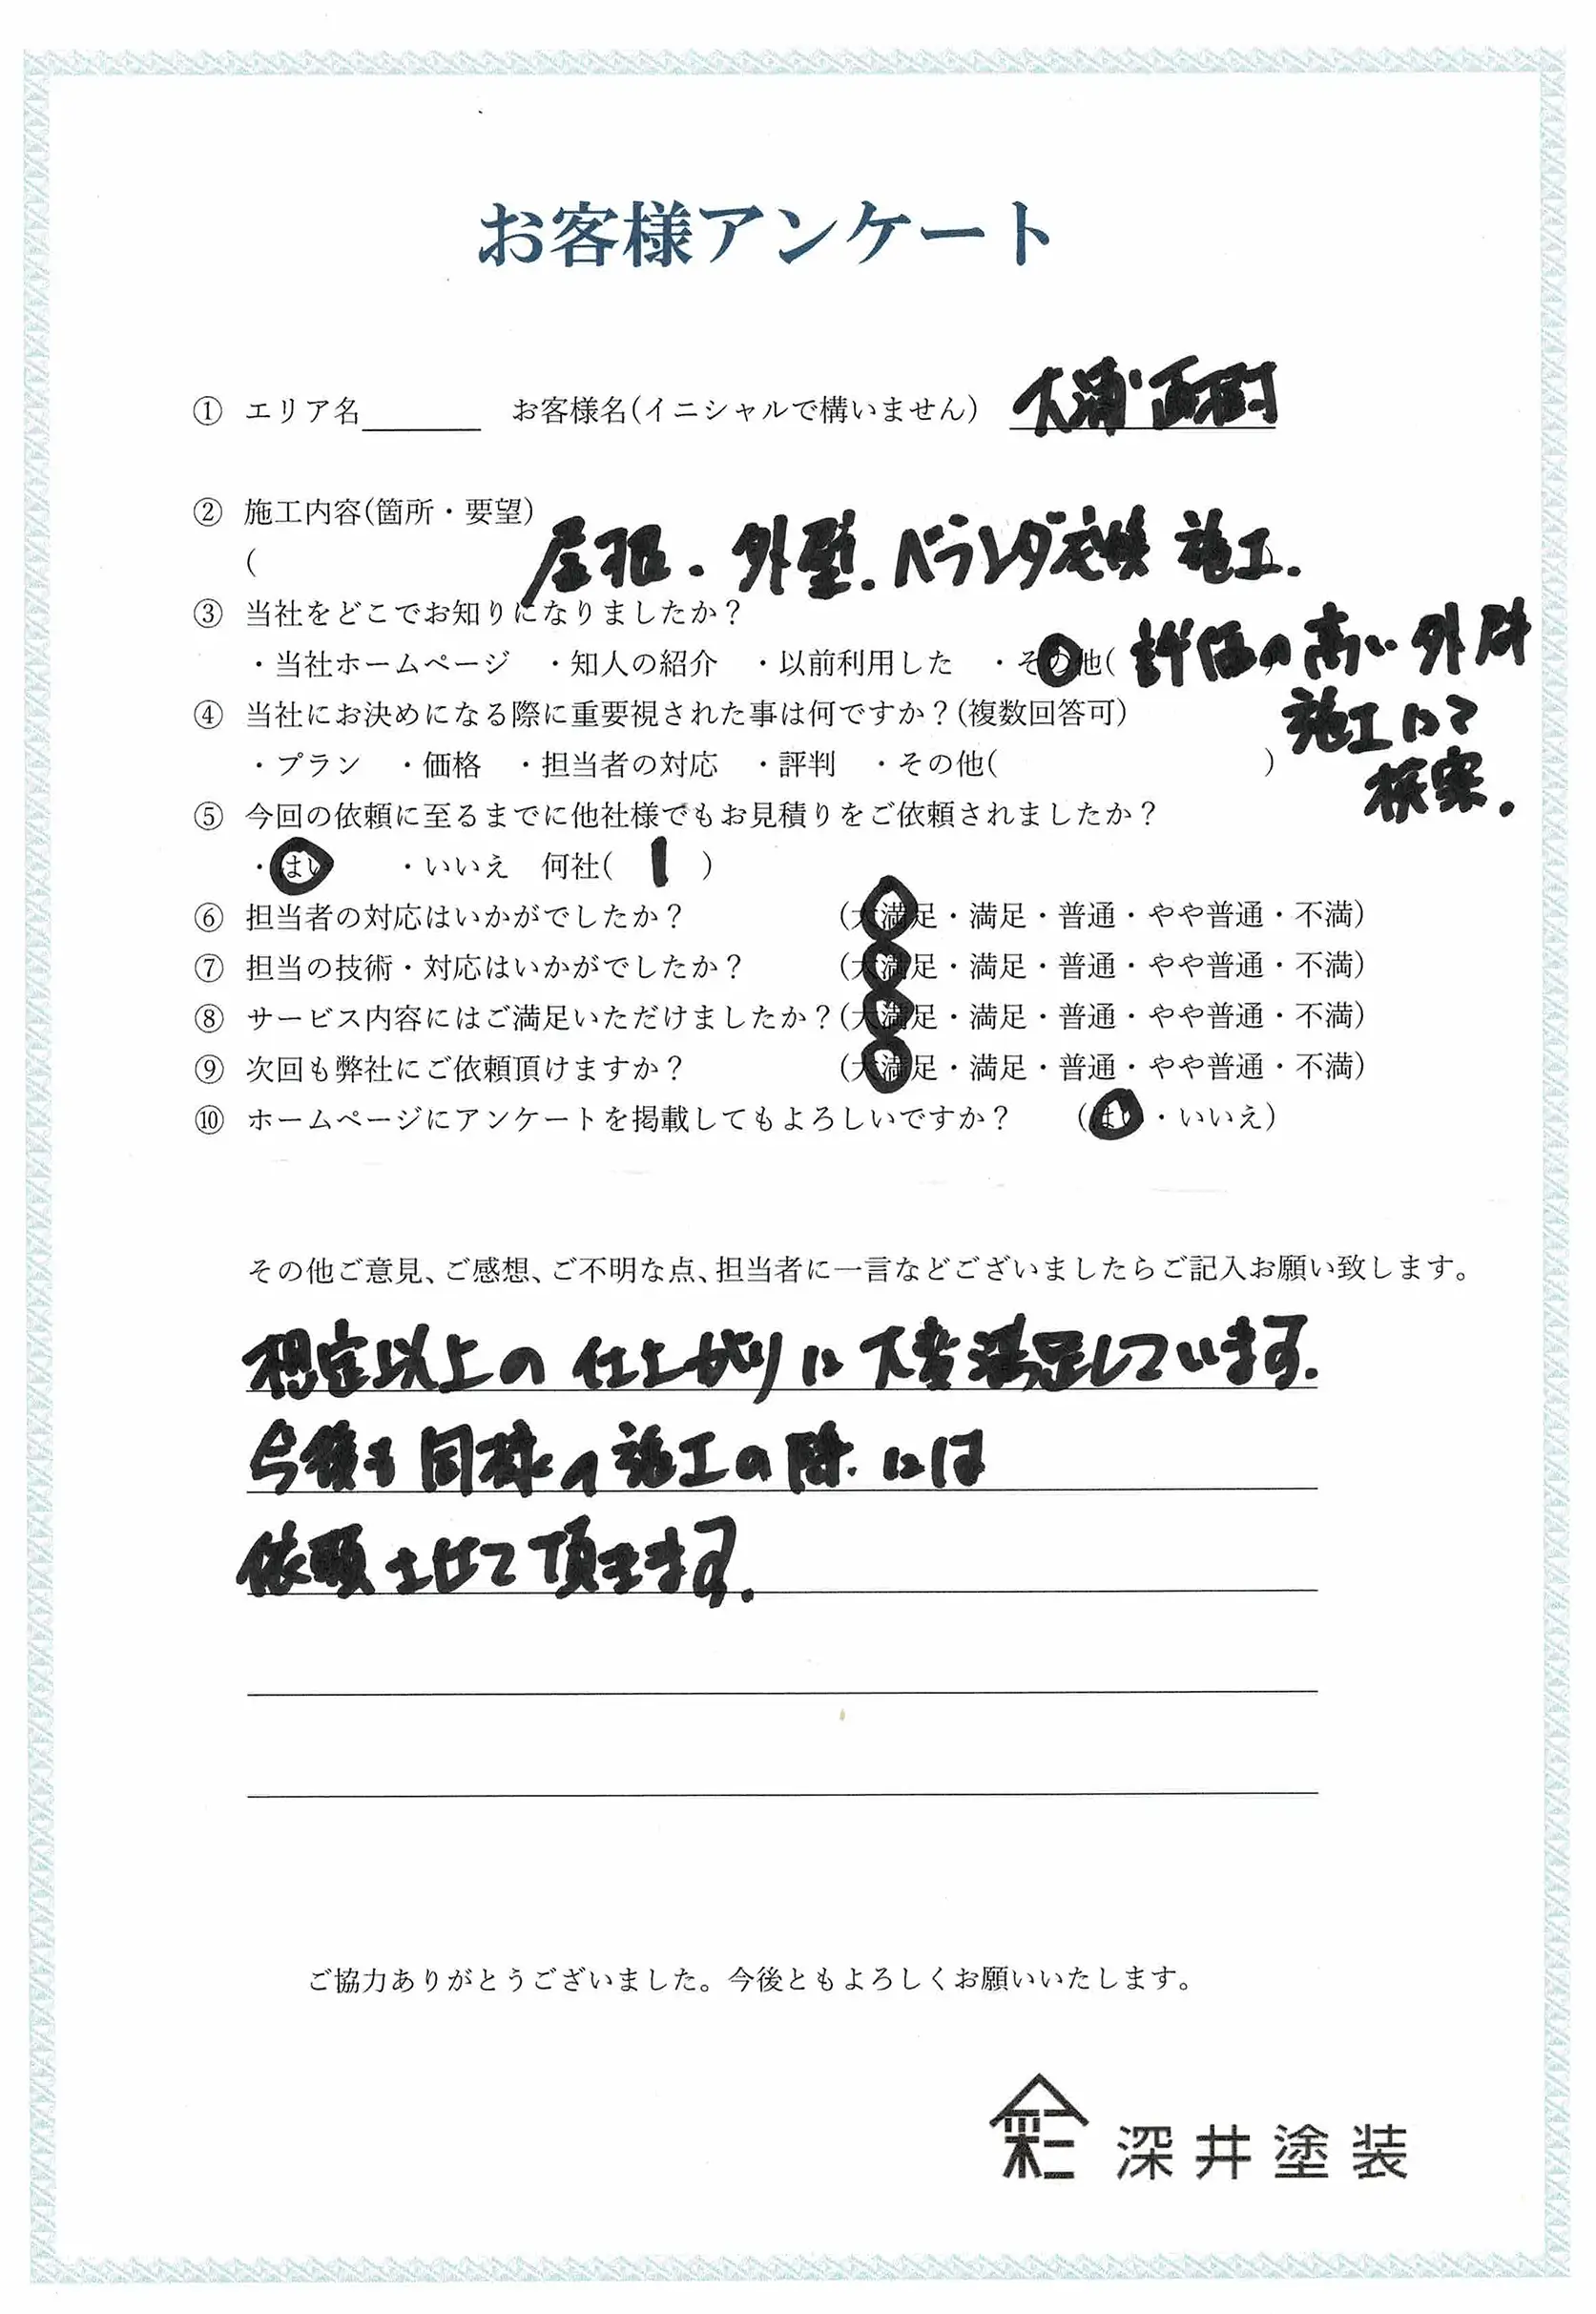 お客様アンケート
① エリア名 お客様名(イニシャルで構いません) 大浦 直樹
② 施工内容(箇所・要望)
( 屋根.外壁.ベランダ 施工. )
③ 当社をどこでお知りになりましたか？
・当社ホームページ ・知人の紹介 ・以前利用した ・その他( 評価の高い外壁 )
施工にて
検索.
④ 当社にお決めになる際に重要視された事は何ですか？(複数回答可)
・プラン ・価格 ・担当者の対応 ・評判 ・その他( )
⑤ 今回の依頼に至るまでに他社様でもお見積りをご依頼されましたか？
・はい ・いいえ 何社( 1 )
⑥ 担当者の対応はいかがでしたか？ (大満足・満足・普通・やや普通・不満)
⑦ 担当の技術・対応はいかがでしたか？ (大満足・満足・普通・やや普通・不満)
⑧ サービス内容にはご満足いただけましたか？(大満足・満足・普通・やや普通・不満)
⑨ 次回も弊社にご依頼頂けますか？ (大満足・満足・普通・やや普通・不満)
⑩ ホームページにアンケートを掲載してもよろしいですか？ (はい・いいえ)
その他ご意見、ご感想、ご不明な点、担当者に一言などございましたらご記入お願い致します。
想定以上の仕上がりに大変満足しています.
今後も同様の施工の際.には
依頼させて頂きます.
ご協力ありがとうございました。今後ともよろしくお願いいたします。
深井塗装